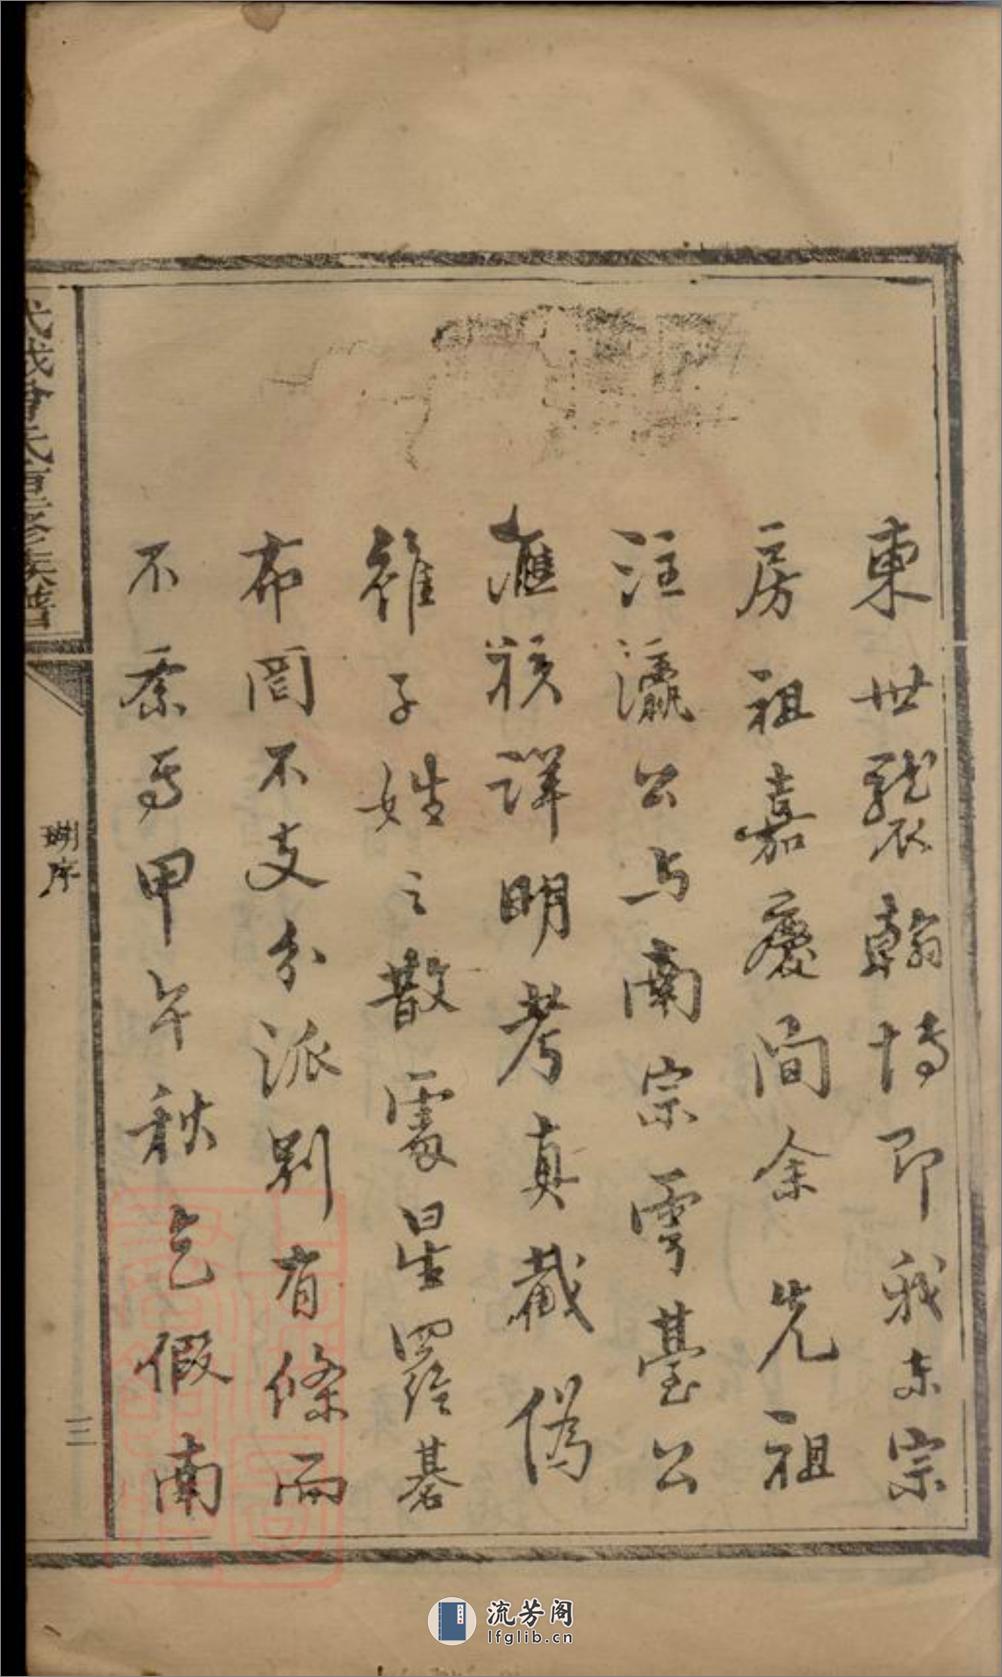 東世襲翰博即我東宗
房祖嘉慶間余先祖
注瀛公与南宗雲臺公
滙核詳明考真截偽
雖子姓之散處星羅碁
布罔不支分派别有條而
不紊焉甲午秋乞假南
武城曾氏重修族譜
序
三
流芳阁
lfglib.cn